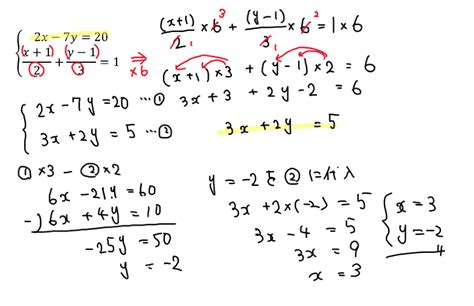 2x − 7y = 20
(x + 1)/2 + (y − 1)/3 = 1
⇒ ×6
(x+1)/2 × 6 3 1 + (y−1)/3 × 6 2 1 = 1 × 6
(x+1) × 3 + (y−1) × 2 = 6
3x + 3 + 2y − 2 = 6
3x + 2y = 5
2x − 7y = 20 … ①
3x + 2y = 5 … ②
① ×3 − ② ×2
6x − 21y = 60
−) 6x + 4y = 10
−25y = 50
y = −2
y = −2 を ② に代入
3x + 2×(−2) = 5
3x − 4 = 5
3x = 9
x = 3
x = 3
y = −2